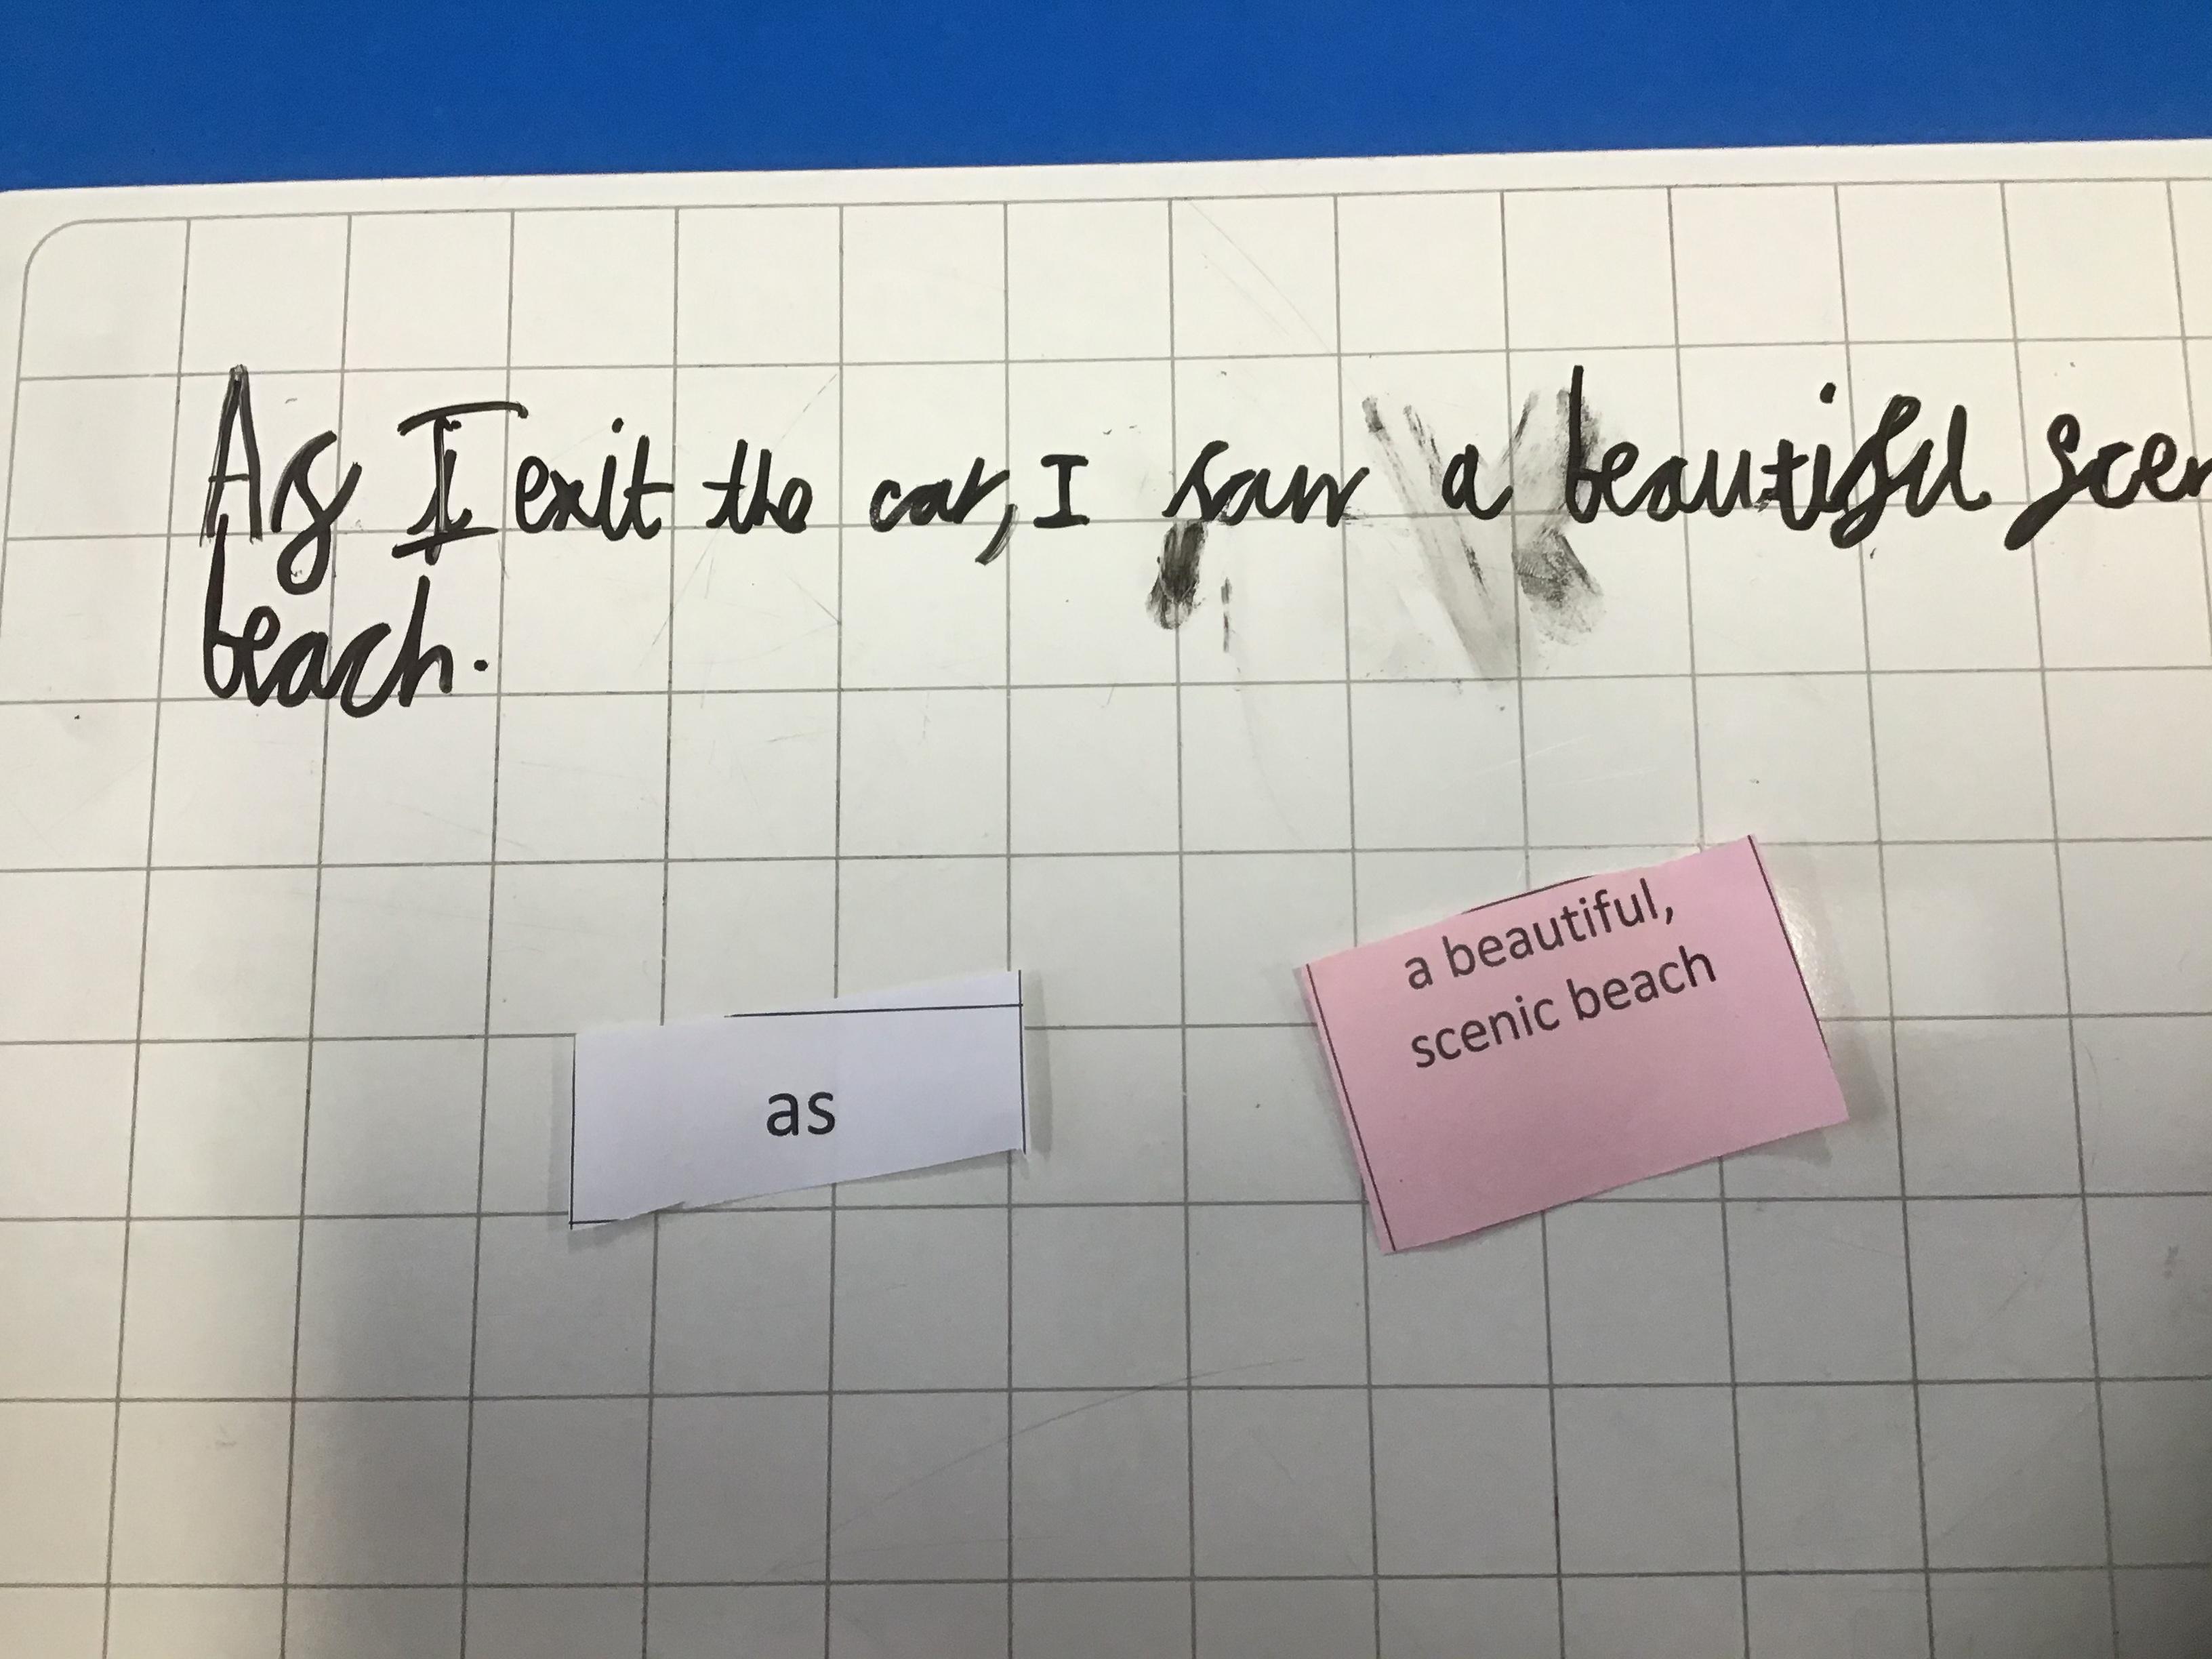 As I exit the car, I saw a beautiful scen
beach.
as
a beautiful,
scenic beach